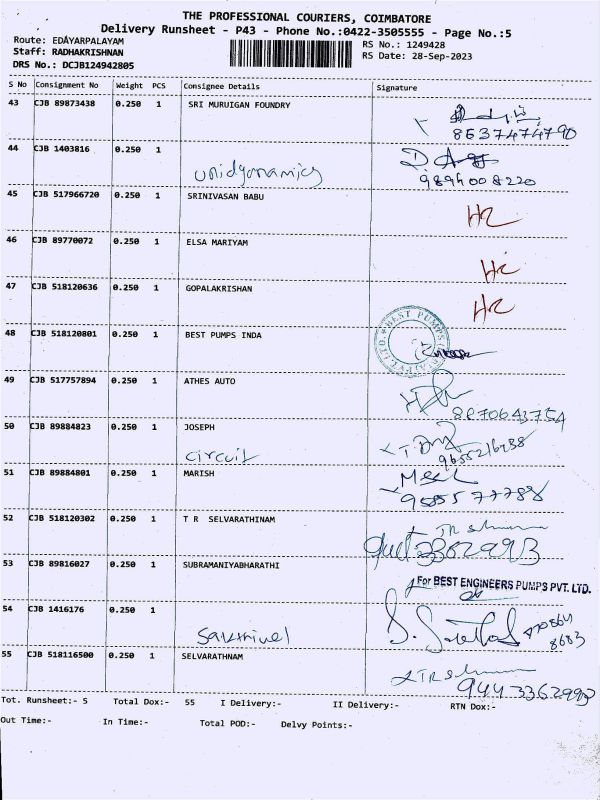 THE PROFESSIONAL COURIERS, COIMBATORE
Delivery Runsheet - P43 - Phone No.:0422-3505555 - Page No.:5
Route: EDAYARPALAYAM
RS No.: 1249428
Staff: RADHAKRISHNAN
RS Date: 28-Sep-2023
DRS No.: DCJB124942805
S No Consignment No Weight PCS Consignee Details Signature
43 CJB 89873438 0.250 1 SRI MURUIGAN FOUNDRY
8637474790
44 CJB 1403816 0.250 1
unidynamics
9894008220
45 CJB 517966720 0.250 1 SRINIVASAN BABU
46 CJB 89770072 0.250 1 ELSA MARIYAM
47 CJB 518120636 0.250 1 GOPALAKRISHAN
48 CJB 518120801 0.250 1 BEST PUMPS INDA
49 CJB 517757894 0.250 1 ATHES AUTO
8870643754
50 CJB 89884823 0.250 1 JOSEPH
circuit
51 CJB 89884801 0.250 1 MARISH
52 CJB 518120302 0.250 1 T R SELVARATHINAM
53 CJB 89816027 0.250 1 SUBRAMANIYABHARATHI
For BEST ENGINEERS PUMPS PVT. LTD.
54 CJB 1416176 0.250 1
Sakthivel
55 CJB 518116500 0.250 1 SELVARATHNAM
Tot. Runsheet:- 5 Total Dox:- 55 I Delivery:- II Delivery:- RTN Dox:-
Out Time:- In Time:- Total POD:- Delvy Points:-